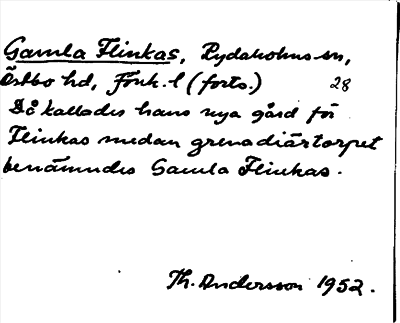 Gamla Flinkas, Rydaholms sn,
Östbo hd, Jönk. l (forts.) 28
Då kallades hans nya gård för
Flinkas medan grenadiärtorpet
benämndes Gamla Flinkas.
Th. Andersson 1952.